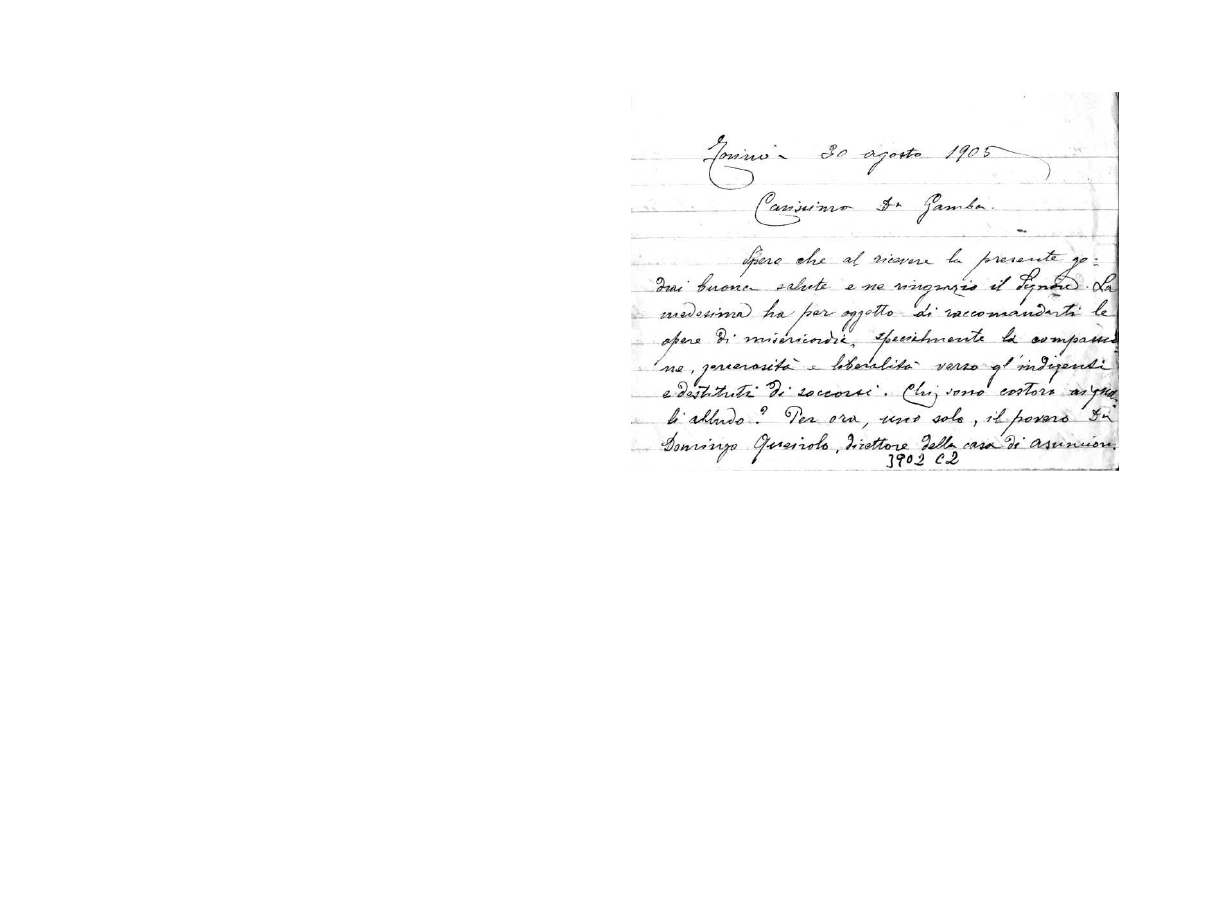 Torino - 30 agosto 1905
Carissimo Dn Gamba.
Spero che al ricevere la presente go=
drai buona salute e ne ringrazio il Signore. La
medesima ha per oggetto di raccomandarti le
opere di misericordia, specialmente la compassio
ne, generosità e liberalità verso gl'indigenti
e destituti di soccorsi. Chi sono costoro ai qua
li alludo? Per ora, uno solo, il povero Dn
Domingo Queirolo, direttore della casa di Asuncion.
3902 C2